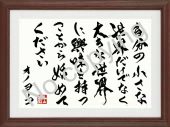 自分の小さな
世界だけでなく
大きな世界
に興味を持つ
ことから始めて
ください